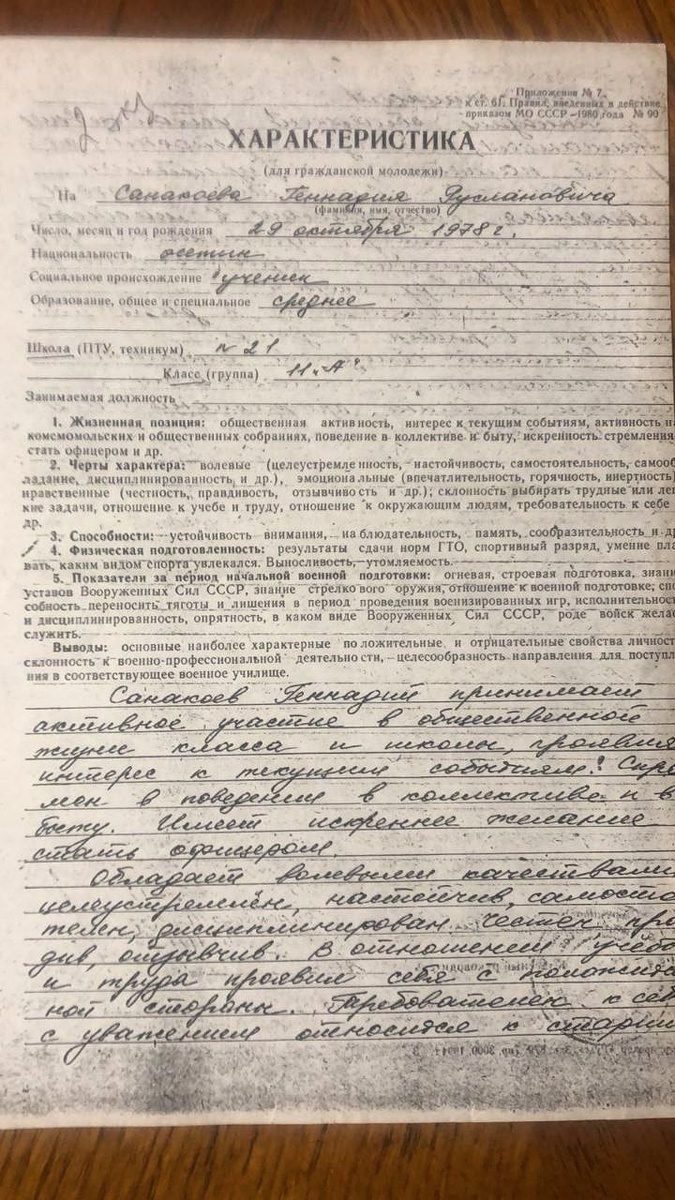 Приложение № 7
к ст. 61, Правил, введенных в действие
приказом МО СССР —1980 года № 90
ХАРАКТЕРИСТИКА
(для гражданской молодежи)
На Санакоева Геннадия Руслановича
(фамилия, имя, отчество)
Число, месяц и год рождения 29 октября 1978 г.
Национальность осетин
Социальное происхождение ученик
Образование, общее и специальное среднее
Школа (ПТУ, техникум) № 21
Класс (группа) 11 „А"
Занимаемая должность
1. Жизненная позиция: общественная активность, интерес к текущим событиям, активность н
комсомольских и общественных собраниях, поведение в коллективе и быту, искренность стремления
стать офицером и др.
2. Черты характера: волевые (целеустремленность, настойчивость, самостоятельность, самооб
ладание, дисциплинированность и др.), эмоциональные (впечатлительность, горячность, инертность)
нравственные (честность, правдивость, отзывчивость и др.); склонность выбирать трудные или лег
кие задачи, отношение к учебе и труду, отношение к окружающим людям, требовательность к себе
др.
3. Способности: устойчивость внимания, наблюдательность, память, сообразительность и др
4. Физическая подготовленность: результаты сдачи норм ГТО, спортивный разряд, умение пла
вать, каким видом спорта увлекался. Выносливость, утомляемость.
5. Показатели за период начальной военной подготовки: огневая, строевая подготовка, знани
уставов Вооруженных Сил СССР, знание стрелкового оружия, отношение к военной подготовке, спо
собность переносить тяготы и лишения в период проведения военизированных игр, исполнительнос
и дисциплинированность, опрятность, в каком виде Вооруженных Сил СССР, роде войск желае
служить.
Выводы: основные наиболее характерные положительные и отрицательные свойства личност
склонность к военно-профессиональной деятельности, целесообразность направления для поступл
ния в соответствующее военное училище.
Санакоев Геннадий принимает
активное участие в общественной
жизни класса и школы, проявля
интерес к текущим событиям. Скро
мен в поведении в коллективе и в
быту. Имеет искреннее желание
стать офицером.
Обладает волевыми качествами
целеустремлён, настойчив, самосто
телен, дисциплинирован. Честен, пра
див, отзывчив. В отношении учебы
и труда проявил себя с положител
ной стороны. Требователен к себе
с уважением относится к старши